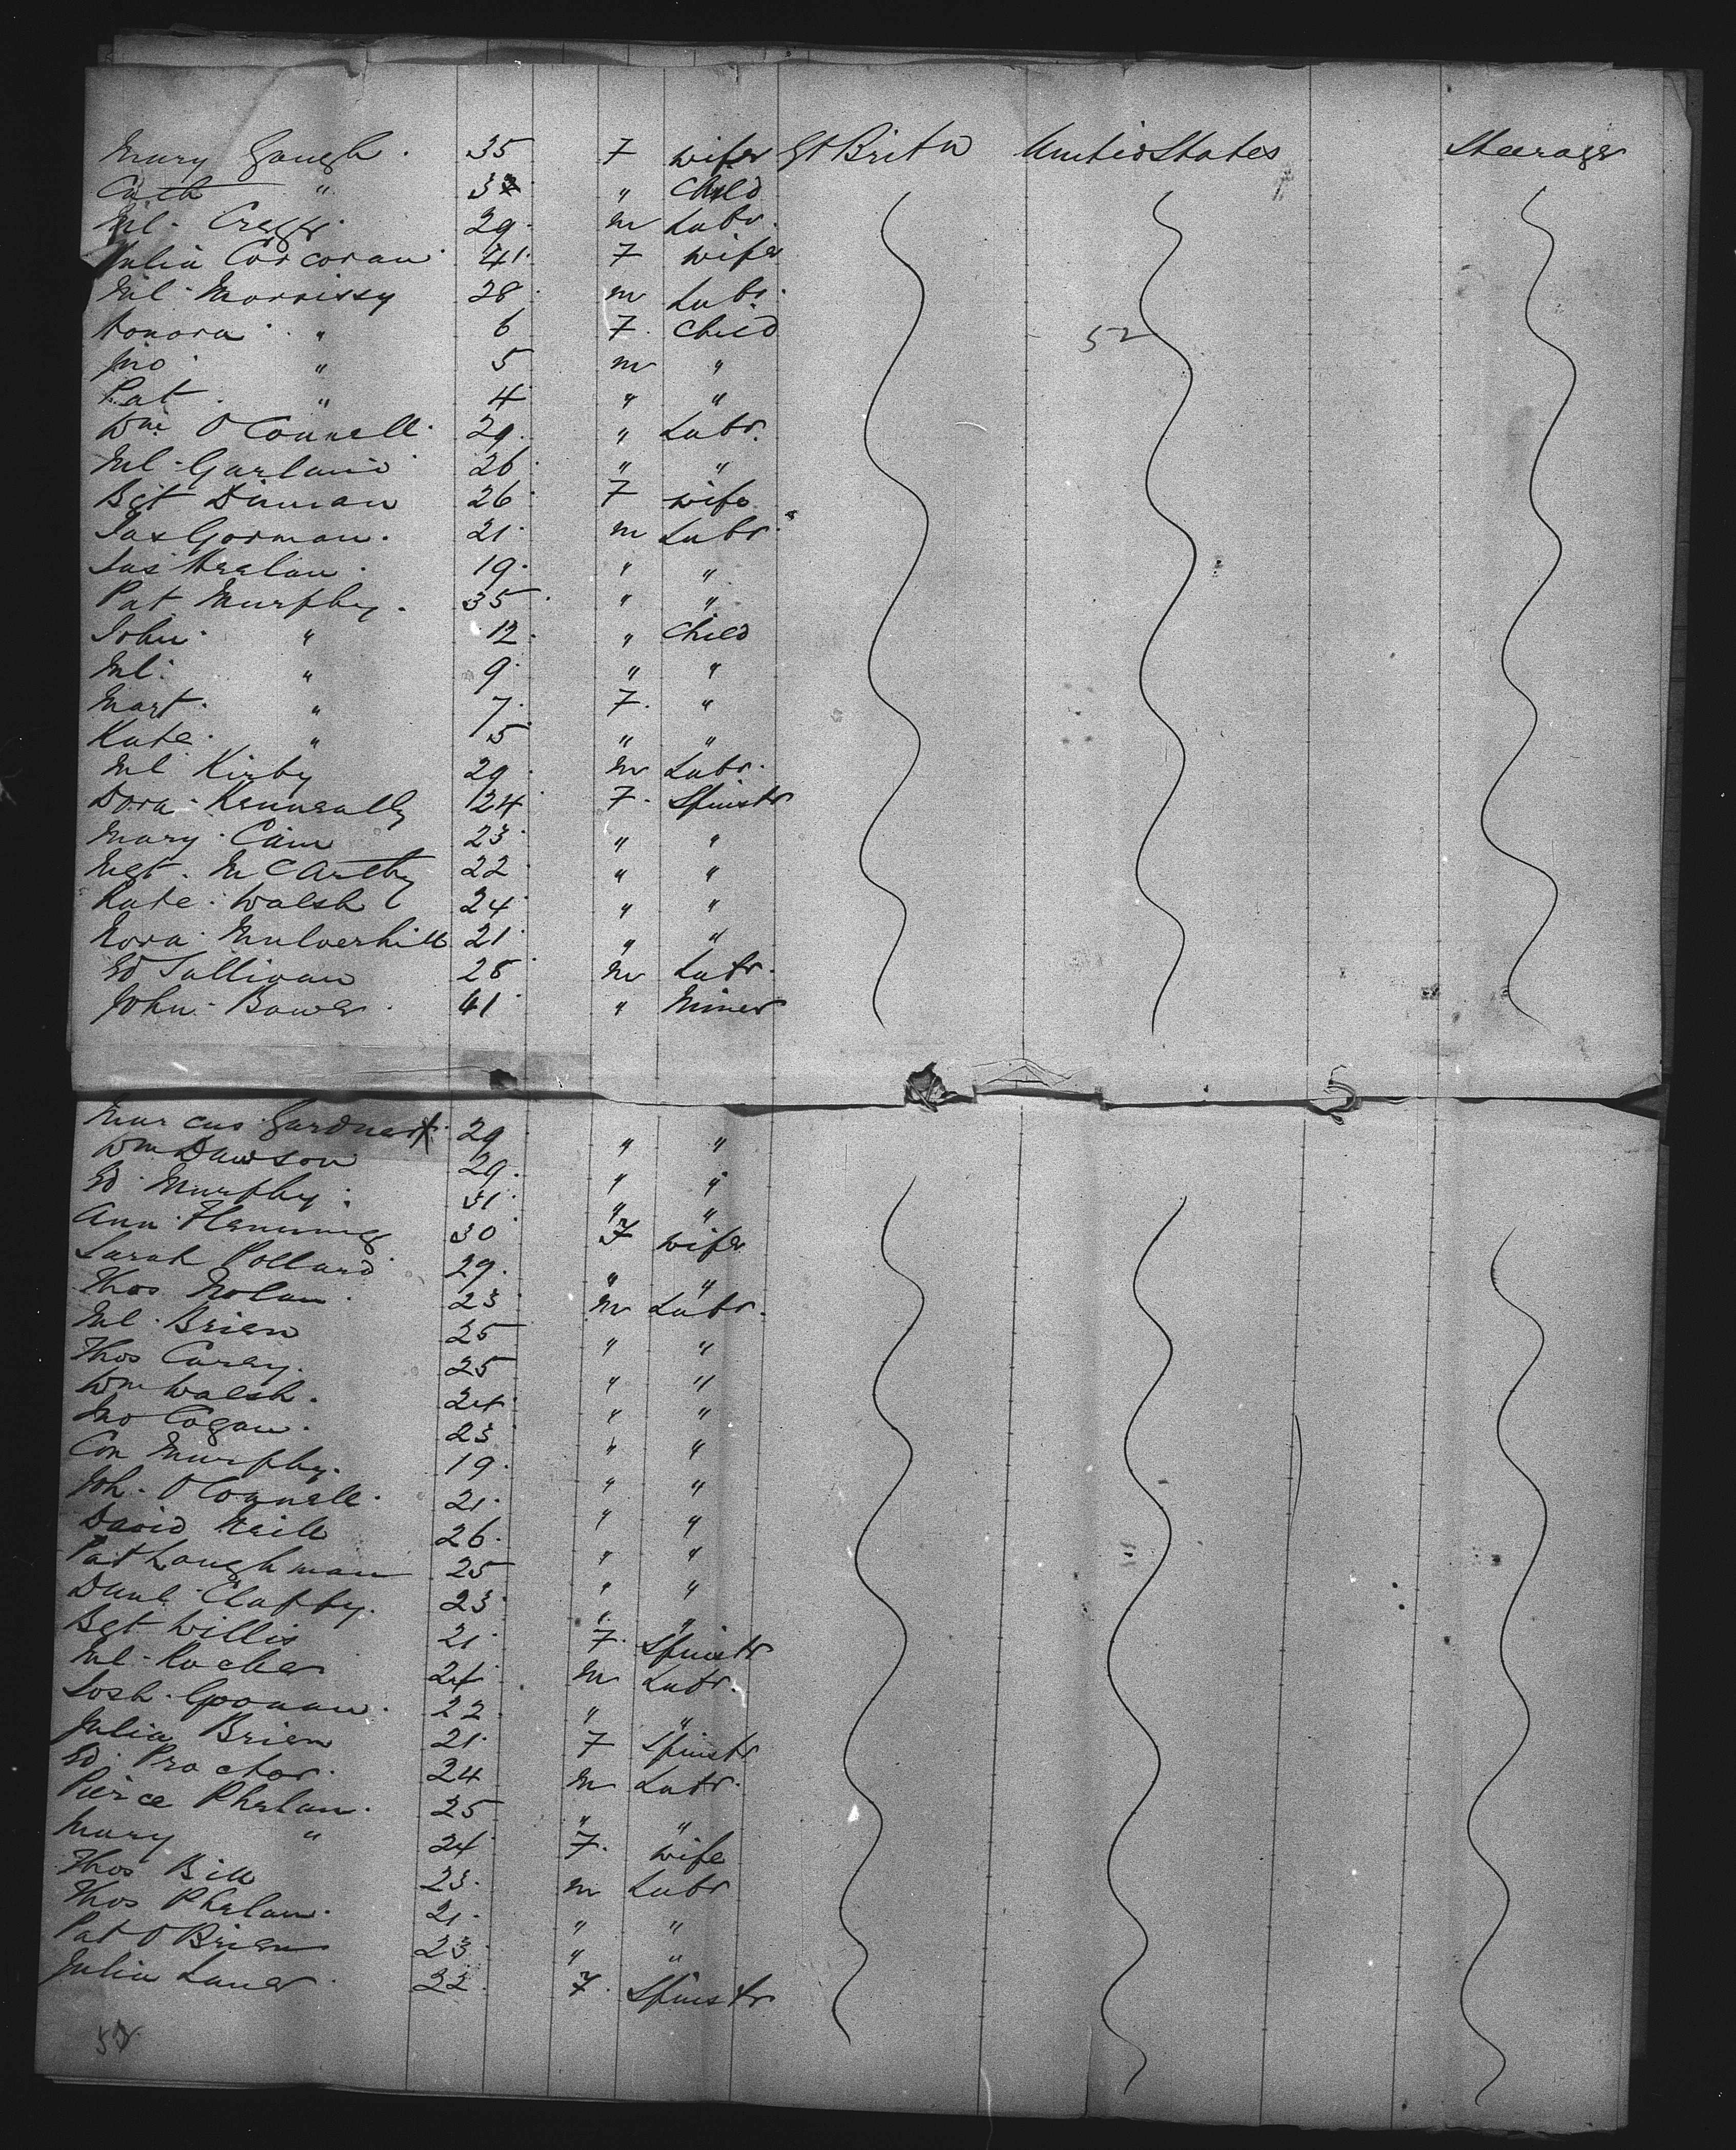 Mary Gough 35 F wife Gt Brit n United States Steerage
Cath " 3 " Child
Ml Cregg 29 m Labr.
Julia Corcoran 41 F wife
Ml Morrissy 28 m Labr.
Honora " 6 F Child
Jno " 5 m "
52
Pat " 4 " "
Wm O Connell 29 " Labr.
Ml Garland 26 " "
Bgt Dinnan 26 F wife
Jas Gorman 21 m Labr.
Jas Healan 19 " "
Pat Murphy 35 " "
John " 12 " Child
Ml " 9 " "
Mart " 7 F "
Kate " 5 " "
Ml Kirby 29 m Labr.
Dora Kenneally 24 F Spinstr
Mary Cain 23 " "
Mgt McCarthy 22 " "
Kate Walsh 24 " "
Nora Mulverhill 21 " "
Ed Sullivan 28 m Labr.
John Bower 41 " Miner
Marcus Gardner X 29 " "
Wm Dawson 29 " "
Ed Murphy 31 " "
Ann Fleming 30 F wife
Sarah Pollard 29 " "
Thos Nolan 23 m Labr.
Ml Brien 25 " "
Thos Carey 25 " "
Wm Walsh 24 " "
Jno Cogan 23 " "
Con Murphy 19 " "
Joh O Connell 21 " "
David Neill 26 " "
Pat Loughman 25 " "
Danl Claffy 23 " "
Bgt Willis 21 F Spinstr
Ml Roche 24 m Labr.
Josh 22 " "
Julia Brien 21 F Spinstr
Ed Proctor 24 m Labr.
Pierce Phelan 25 " "
Mary " 24 F wife
Thos Bill 23 m Labr
Thos Phelan 21 " "
Pat O Brien 23 " "
Julia Lane 22 F Spinstr